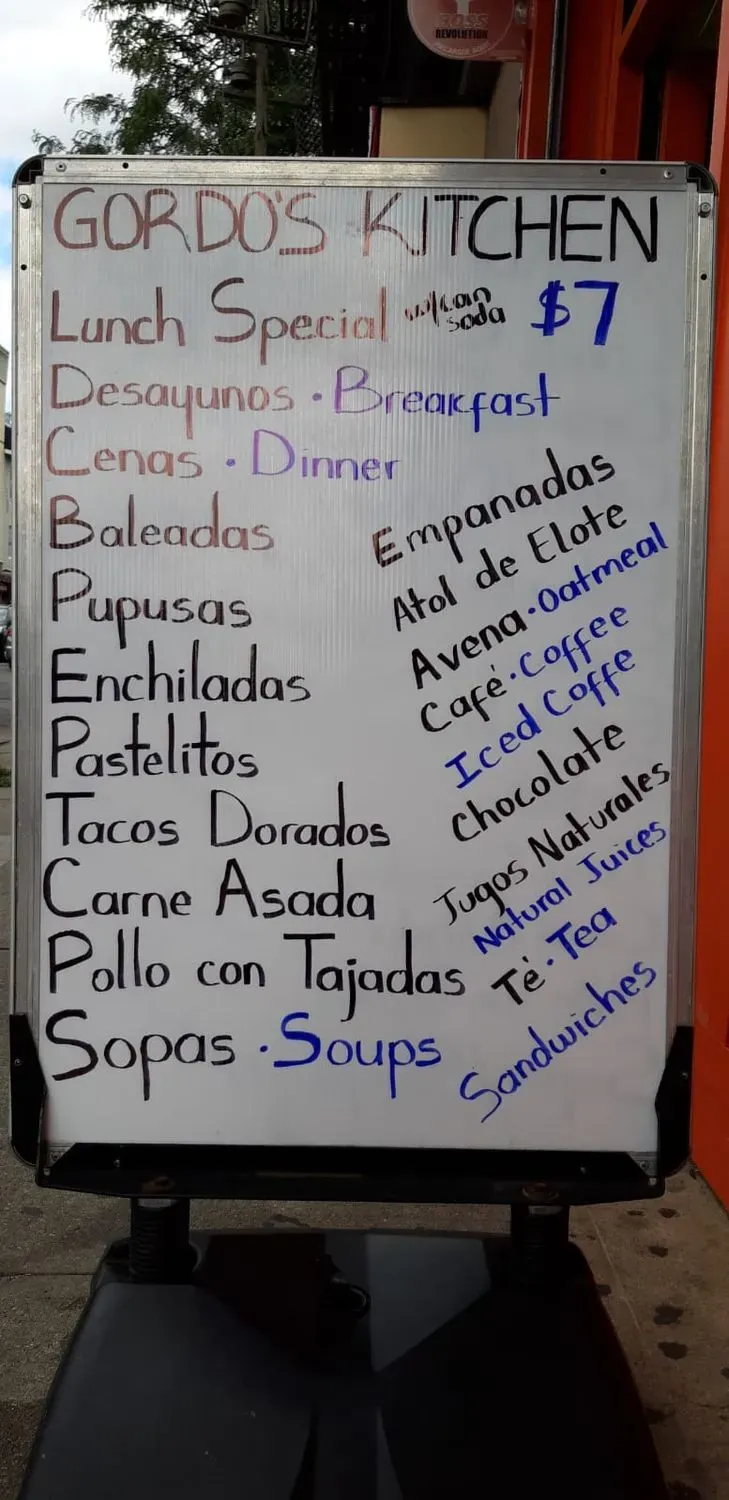 BOSS
REVOLUTION
RECARGUE AQUI
GORDO'S KITCHEN
Lunch Special w/can soda $7
Desayunos · Breakfast
Cenas · Dinner
Baleadas
Pupusas
Enchiladas
Pastelitos
Tacos Dorados
Carne Asada
Pollo con Tajadas
Sopas · Soups
Empanadas
Atol de Elote
Avena · Oatmeal
Café · Coffee
Iced Coffe
Chocolate
Jugos Naturales
Natural Juices
Té · Tea
Sandwiches